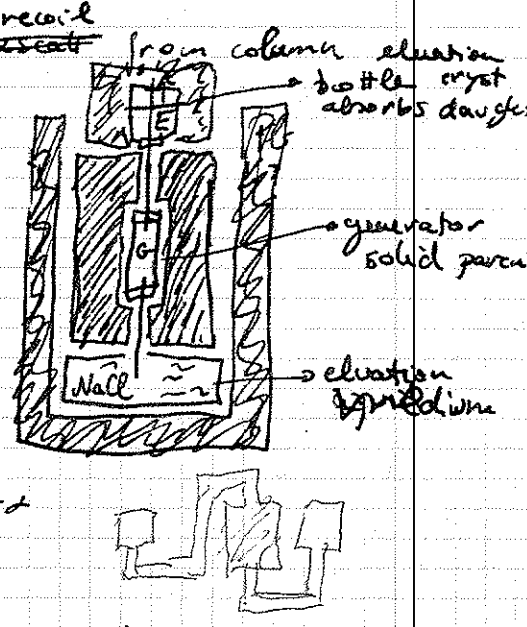 recoil
from column elution
bottle cryst
absorbs daugh
E
generator
G
solid paren
NaCl
eluation
medium